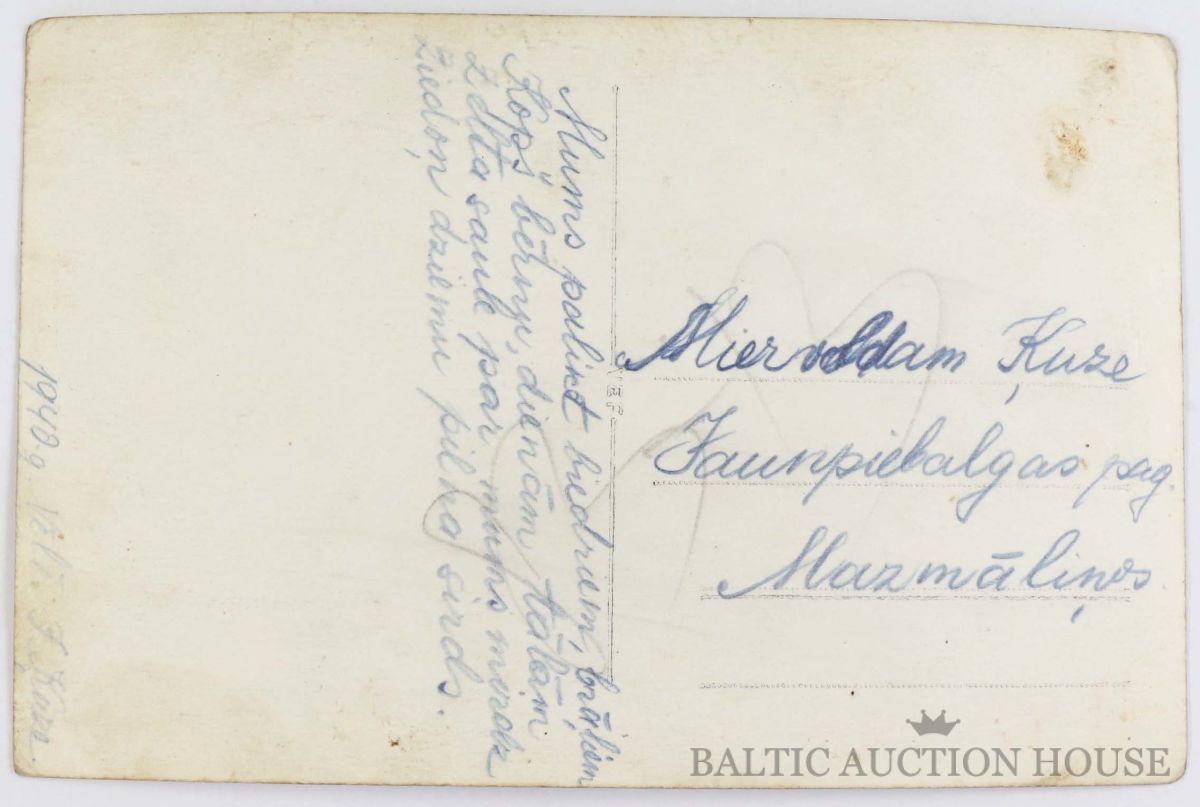 Mums palikt biedriem, brāļiem
Kopš bērnu dienām tālām
Zelta saule par mums mirdz
Ziedoņ dziesmu pilna sirds.
1940.g.
J. Ķuze.
VEF
Miervoldam Ķuze
Jaunpiebalgas pag.
Mazmāliņos
BALTIC AUCTION HOUSE